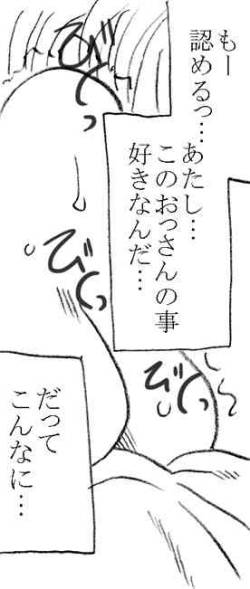 もー
認めるっ…あたし…
このおっさんの事
好きなんだ…
びどっ
びくっ
びくっ
だって
こんなに…